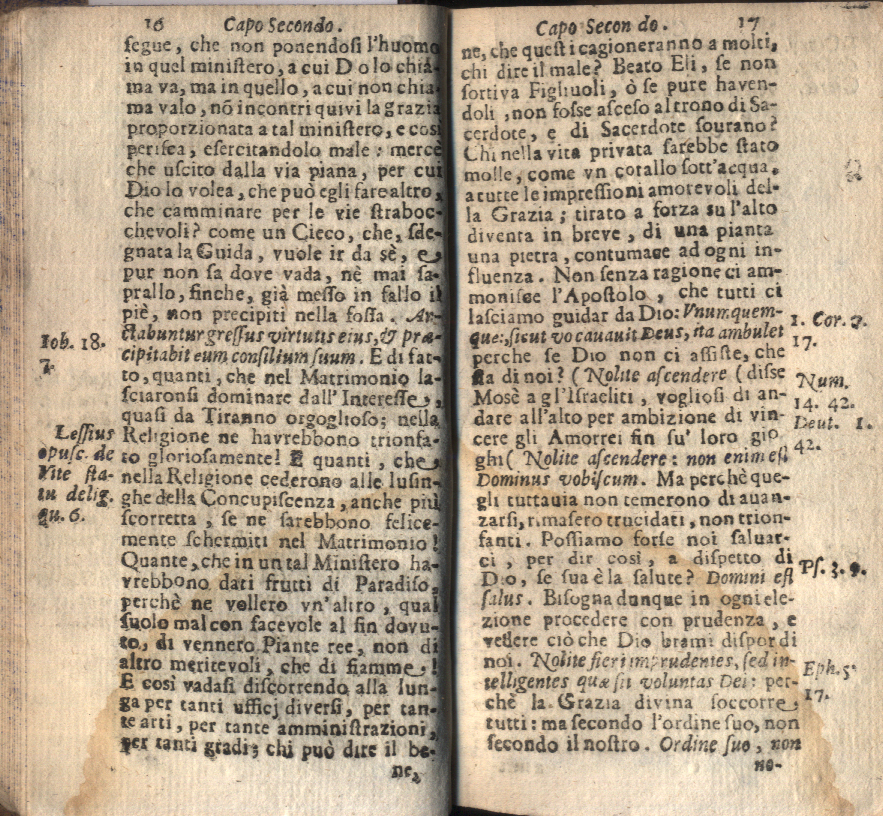 16 Capo Secondo.
segue, che non ponendosi l'huomo
in quel ministero, a cui Dio lo chia-
ma va, ma in quello, a cui non chia-
ma valo, nō incontri quivi la grazia
proporzionata a tal ministero, e così
perisca, esercitandolo male: mercè
che uscito dalla via piana, per cui
Dio lo volea, che può egli fare altro,
che camminare per le vie straboc-
chevoli? come un Cieco, che, sde-
gnata la Guida, vuole ir da sè, e
pur non sa dove vada, nè mai sa-
prallo, finche, già messo in fallo il
piè, non precipiti nella fossa. Ar-
ctabuntur gressus virtutis eius, & præ-
cipitabit eum consilium suum. E di fat-
to, quanti, che nel Matrimonio la-
sciaronsi dominare dall'Interesse,
quasi da Tiranno orgoglioso; nella
Religione ne havrebbono trionfa-
to gloriosamente! E quanti, che
nella Religione cederono alle lusin-
ghe della Concupiscenza, anche più
scorretta, se ne sarebbono felice-
mente schermiti nel Matrimonio!
Quante, che in un tal Ministero ha-
vrebbono dati frutti di Paradiso,
perchè ne vollero vn'altro, qual
suolo mal con facevole al fin dovu-
to, di vennero Piante ree, non di
altro meritevoli, che di fiamme!
E così vadasi discorrendo alla lun-
ga per tanti ufficj diversi, per tan-
te arti, per tante amministrazioni,
per tanti gradi; chi può dire il be-
ne,
Iob. 18.
7.
Lessius
opusc. de
Vite sta-
tu delig.
qu. 6.
Capo Secon do. 17
ne, che questi cagioneranno a molti,
chi dire il male? Beato Eli, se non
sortiva Figliuoli, ò se pure haven-
doli, non fosse asceso al trono di Sa-
cerdote, e di Sacerdote sourano?
Chi nella vita privata sarebbe stato
molle, come vn corallo sott'acqua,
a tutte le impressioni amorevoli del-
la Grazia; tirato a forza su l'alto
diventa in breve, di una pianta
una pietra, contumace ad ogni in-
fluenza. Non senza ragione ci am-
monisce l'Apostolo, che tutti ci
lasciamo guidar da Dio: Vnumquem-
que:, sicut vo cauauit Deus, ita ambulet
perche se Dio non ci assiste, che
sia di noi? ( Nolite ascendere (disse
Mosè a gl'Israeliti, vogliosi di an-
dare all'alto per ambizione di vin-
cere gli Amorrei fin su' loro gio
ghi( Nolite ascendere: non enim est
Dominus vobiscum. Ma perchè que-
gli tuttauia non temerono di auan-
zarsi, rimasero trucidati, non trion-
fanti. Possiamo forse noi saluar-
ci, per dir così, a dispetto di
Dio, se sua è la salute? Domini est
salus. Bisogna dunque in ogni ele-
zione procedere con prudenza, e
vedere ciò che Dio brami dispor di
noi. Nolite fieri imprudentes, sed in-
telligentes quæ sit voluntas Dei: per-
chè la Grazia divina soccorre,
tutti: ma secondo l'ordine suo, non
secondo il nostro. Ordine suo, non
no-
1. Cor. 7.
17.
Num.
14. 42.
Deut. 1.
42.
Ps. 3. 9.
Eph. 5.
17.